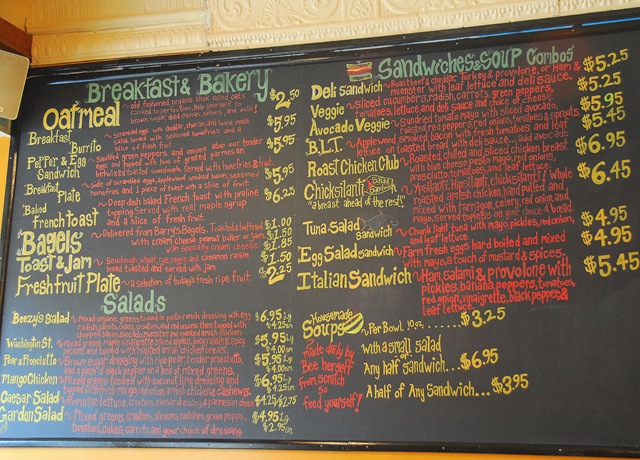 Breakfast & Bakery
Oatmeal ~ old fashioned organic thick rolled oats
cooked to perfection. Help yourself to
brown sugar, dried cherries, raisins, and milk! $2.50
Breakfast Burrito ~ scrambled eggs with cheddar, and house made
salsa served with seasoned homefries and a
slice of fresh fruit $5.95
Pepper & Egg Sandwich ~ Sautéed green peppers and onions atop over tender
eggs and topped with two of grated parmesan
betwixt toasted sourdough. Served with homefries & fruit. $5.95
Breakfast Plate ~ side of scrambled eggs, applewood smoked bacon, seasoned
homefries, and 1 piece of toast with a slice of fruit. $5.95
Baked french toast ~ Deep dish baked French toast with praline
topping. Served with real maple syrup
and a slice of fresh fruit. $6.25
"Bagels" ~ Delivered from Barry's Bagels. Toasted & buttered $1.00
with cream cheese, peanut butter or jam $1.50
with specialty cream cheese $1.85
Toast & Jam ~ Sourdough, wheat, rye, veggie, and cinnamon raisin
bread toasted and served with jam. $1.50
Fresh fruit Plate ~ a selection of today's fresh ripe fruit. $2.25
Salads
Beezy's Salad ~ mixed organic greens tossed in pesto ranch dressing with egg
radish, carrots, cukes, croutons, and red onions then topped with
chopped bacon, avocado, muenster and roasted amish chicken. $6.95 Lg
$4.25 sm
Washington St. ~ mixed greens, maple vinaigrette, sliced apples, juicy raisins, spicy
pecans and topped with roasted amish chicken breast $5.95 Lg
$4.00 sm
Pear & Prosciutto ~ Brown sugar dressing with ripe pear, tender prosciutto,
and a pinch of black pepper on a bed of mixed greens. $5.95 Lg
$4.00 sm
Mango Chicken ~ Mixed greens tossed with coconut lime dressing and
topped with ripe mango, red onion, amish chicken & cashews. $6.95 Lg
$4.25 sm
Caesar Salad ~ Romaine lettuce, croutons, caesar dressing & parmesan cheese $4.25/$2.75
Garden Salad ~ Mixed greens, croutons, shrooms, radishes, green pepps,
tomatoes, cukes, carrots, and your choice of dressing. $4.95 Lg
$2.95 sm
Sandwiches & Soup Combos
Deli Sandwich ~ Roast beef & cheddar, Turkey & provolone, or Ham &
muenster with leaf lettuce and deli sauce. $5.25
Veggie ~ Sliced cucumbers, radish, carrots, green peppers,
tomatoes, lettuce, and deli sauce and choice of cheese. $5.25
Avocado Veggie ~ Sundried tomato mayo with sliced avocado,
roasted red pepper, red onions, tomatoes, & sprouts $5.95
B.L.T. ~ Applewood smoked bacon with fresh tomatoes and leaf
lettuce on toasted bread with deli sauce. add avocado $5.45
Roast Chicken Club ~ Roasted, chilled and sliced chicken breast
with bacon, pesto mayo, red onions,
prosciutto, tomatoes, and leaf lettuce. $6.95
Chicksilanti Salad Sandwich
"a breast ahead of the rest!" ~ Ypsilanti, Hipsilanti, Chicksilanti! Whole
roasted amish chicken, hand pulled and
mixed with tarragon, celery, red onion, and
mayo. Served topless on your choice of bread. $6.45
Tuna Salad Sandwich ~ Chunk light tuna with mayo, pickles, red onion,
and leaf lettuce. $4.95
Egg Salad Sandwich ~ Farm fresh eggs hard boiled and mixed
with mayo, a touch of mustard & spices. $4.95
Italian Sandwich ~ Ham, salami & provolone with
pickles, banana peppers, tomatoes,
red onion, vinaigrette, black pepper, &
leaf lettuce. $5.45
Housemade Soups ~ Per Bowl 10oz. ...... $3.25
made daily by
Bee herself
from scratch
so
feed yourself!
with a small salad
or
Any half sandwich... $6.95
A half of Any Sandwich... $3.95